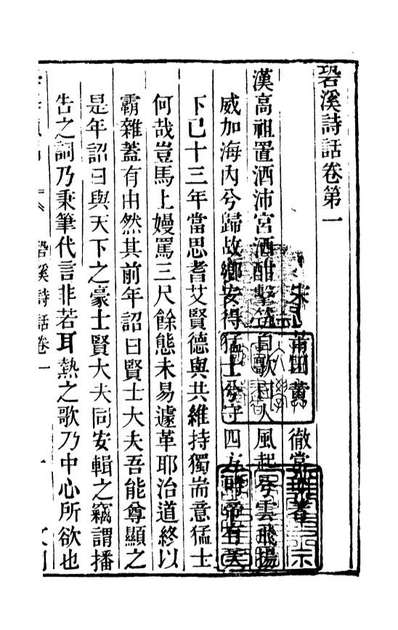 䂬溪詩話卷第一
宋 莆田黃 徹常明著
漢高祖置酒沛宮酒酣擊筑自歌曰大風起兮雲飛揚
威加海內兮歸故鄉安得猛士兮守四方時帝有天
下已十三年當思耆艾賢德與共維持獨耑意猛士
何哉豈馬上嫚罵三尺餘態未易遽革耶治道終以
霸雜蓋有由然其前年詔曰賢士大夫吾能尊顯之
是年詔曰與天下之豪士賢大夫同安輯之竊謂播
告之詞乃秉筆代言非若耳熱之歌乃中心所欲也
䂬溪詩話卷一